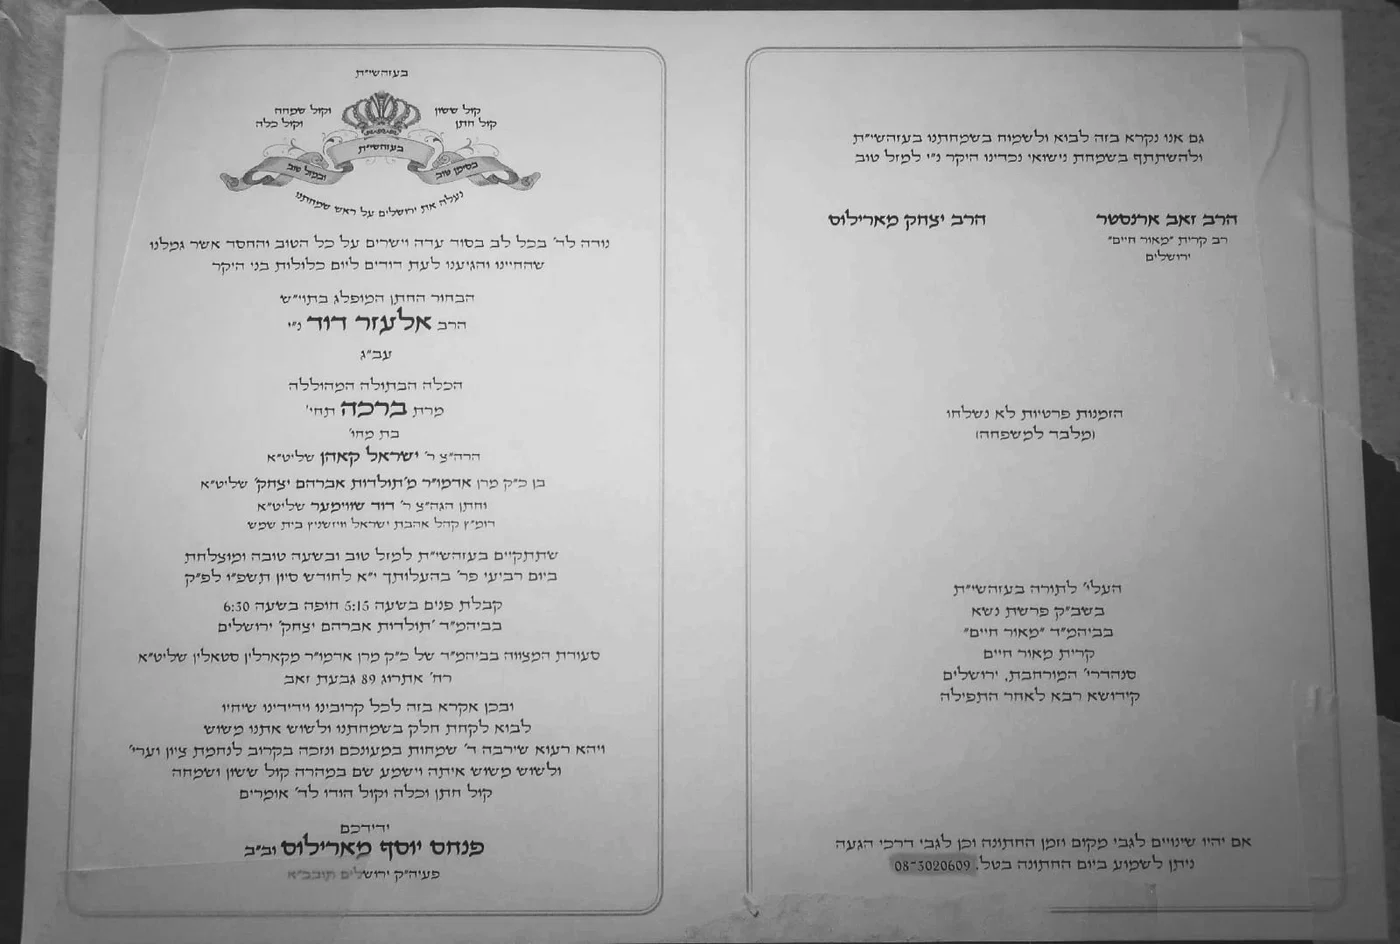 בעזהשי״ת
קול ששון
וקול שמחה
קול חתן
וקול כלה
בעזהשי״ת
בסימן טוב
ובמזל טוב
נעלה את ירושלים על ראש שמחתנו
נודה לד׳ בכל לב בסוד עדה וישרים על כל הטוב והחסד אשר גמלנו
שהחיינו והגיענו לעת דודים ליום כלולות בני היקר
הבחור החתן המופלג בתוי״ש
הרב אלעזר דוד נ״י
עב״ג
הכלה הבתולה המהוללה
מרת ברכה תחי׳
בת מחו׳
הרה״צ ר׳ ישראל קאהן שליט״א
בן כ״ק מרן אדמו״ר מ׳תולדות אברהם יצחק׳ שליט״א
וחתן הגה״צ ר׳ דוד שווימער שליט״א
דומ״ץ קהל אהבת ישראל וויזשניץ בית שמש
שתתקיים בעזהשי״ת למזל טוב ובשעה טובה ומוצלחת
ביום רביעי פר׳ בהעלותך י״א לחודש סיון תשפ״ו לפ״ק
קבלת פנים בשעה 5:15 חופה בשעה 6:30
בביהמ״ד ׳תולדות אברהם יצחק׳ ירושלים
סעודת המצווה בביהמ״ד של כ״ק מרן אדמו״ר מקארלין סטאלין שליט״א
רח׳ אתרוג 89 גבעת זאב
ובכן אקרא בזה לכל קרובינו וידידינו שיחיו
לבוא לקחת חלק בשמחתנו ולשוש אתנו משוש
ויהא רעוא שירבה ד׳ שמחות במעונכם ונזכה בקרוב לנחמת ציון וערי׳
ולשוש משוש איתה וישמע שם במהרה קול ששון ושמחה
קול חתן וכלה וקול הודו לד׳ אומרים
ידידכם
פנחס יוסף מארילוס וב״ב
פעיה״ק ירושלים תובב״א
גם אנו נקרא בזה לבוא ולשמוח בשמחתנו בעזהשי״ת
ולהשתתף בשמחת נישואי נכדינו היקר נ״י למזל טוב
הרב זאב ארנסטר
רב קרית ״מאור חיים״
ירושלים
הרב יצחק מארילוס
הזמנות פרטיות לא נשלחו
(מלבד למשפחה)
העלי׳ לתורה בעזהשי״ת
בשב״ק פרשת נשא
בביהמ״ד ״מאור חיים״
קרית מאור חיים
סנהדרי׳ המורחבת, ירושלים
קידושא רבא לאחר התפילה
אם יהיו שינויים לגבי מקום וזמן החתונה וכן לגבי דרכי הגעה
ניתן לשמוע ביום החתונה בטל. 08-3020609